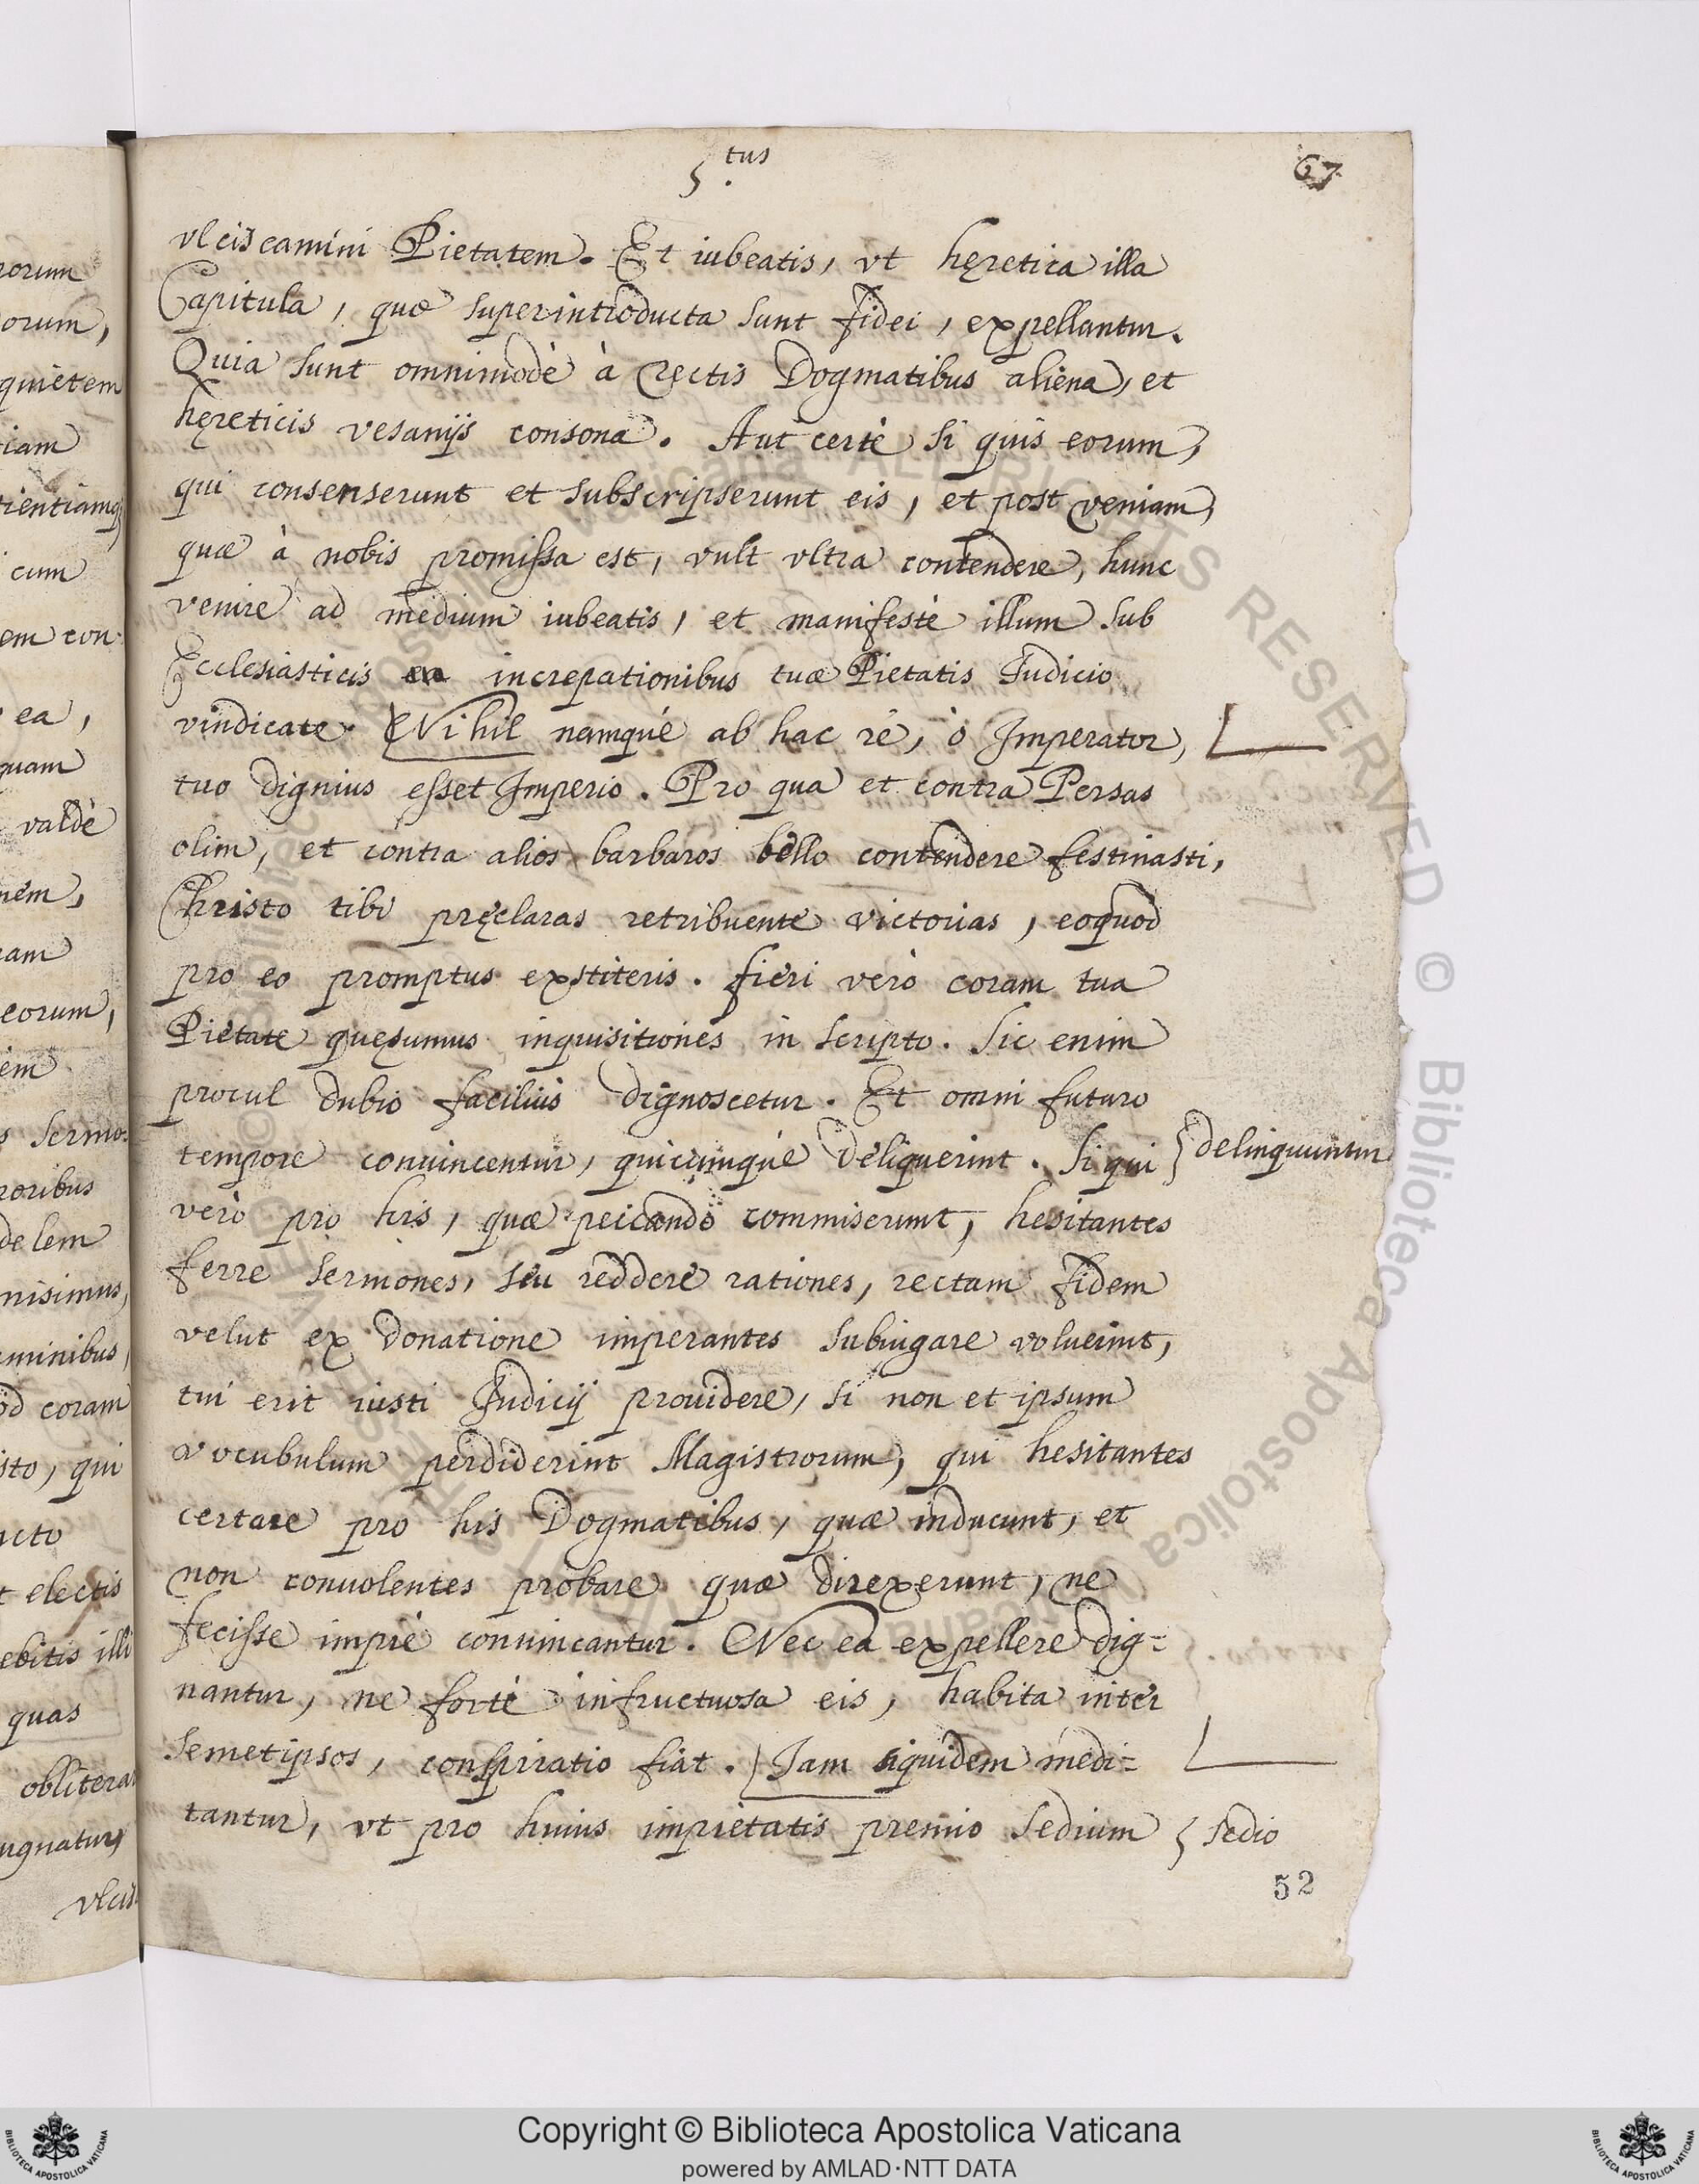 5.tus
67
vlciscamini Pietatem. Et iubeatis, vt hęretica illa
Capitula, quæ superintroducta sunt fidei, expellantur.
Quia sunt omnimodè à rectis Dogmatibus aliena, et
hęreticis vesanijs consona. Aut certè si quis eorum,
qui consenserunt et subscripserunt eis, et post veniam,
quæ à nobis promissa est, vult vltra contendere, hunc
venire ad medium iubeatis, et manifestè illum sub
Ecclesiasticis increpationibus tuæ Pietatis Judicio
vindicate. Nihil namque ab hac re, ò Imperator,
tuo dignius esset Imperio. Pro qua et contra Persas
olim, et contra alios barbaros bello contendere festinasti,
Christo tibi pręclaras retribuente victorias, eoquod
pro eo promptus exstiteris. fieri verò coram tua
Pietate quęsumus inquisitiones in scripto. Sic enim
procul dubio facilius dignoscetur. Et omni futuro
tempore conuincentur, quicumque deliquerint. Si qui } delinquuntur
verò pro his, quæ peccando commiserunt, hesitantes
ferre sermones, seu reddere rationes, rectam fidem
velut ex donatione imperantes subiugare voluerint,
tui erit iusti Judicij prouidere, si non et ipsum
vocubulum perdiderint Magistrorum, qui hesitantes
certare pro his Dogmatibus, quæ inducunt, et
non conuolentes probare quæ direxerunt, ne
fecisse impiè conuincantur. Nec ea expellere dig=
nantur, ne fortè infructuosa eis, habita inter
semetipsos, conspiratio fiat. Jam siquidem medi=
tantur, vt pro huius impietatis premio sedium } sedio
52
rorum
orum,
quietem
tiam
cum
em con
ea,
quam
valdè
nem,
eorum,
em
s sermo
roribus
delem
nisimus,
minibus,
od coram
sto, qui
cto
t electis
ebitis illi
quas
oblitera
ugnatur
vlcis
© Biblioteca Apostolica Vaticana ALL RIGHTS RESERVED © Biblioteca Apostolica Vaticana
Copyright © Biblioteca Apostolica Vaticana
powered by AMLAD·NTT DATA
BIBLIOTECA APOSTOLICA VATICANA
BIBLIOTECA APOSTOLICA VATICANA